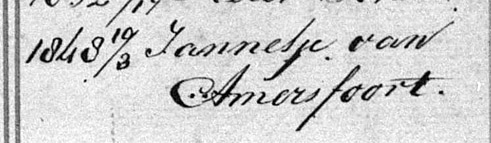 1848 19/3 Jannetje van
Amersfoort.